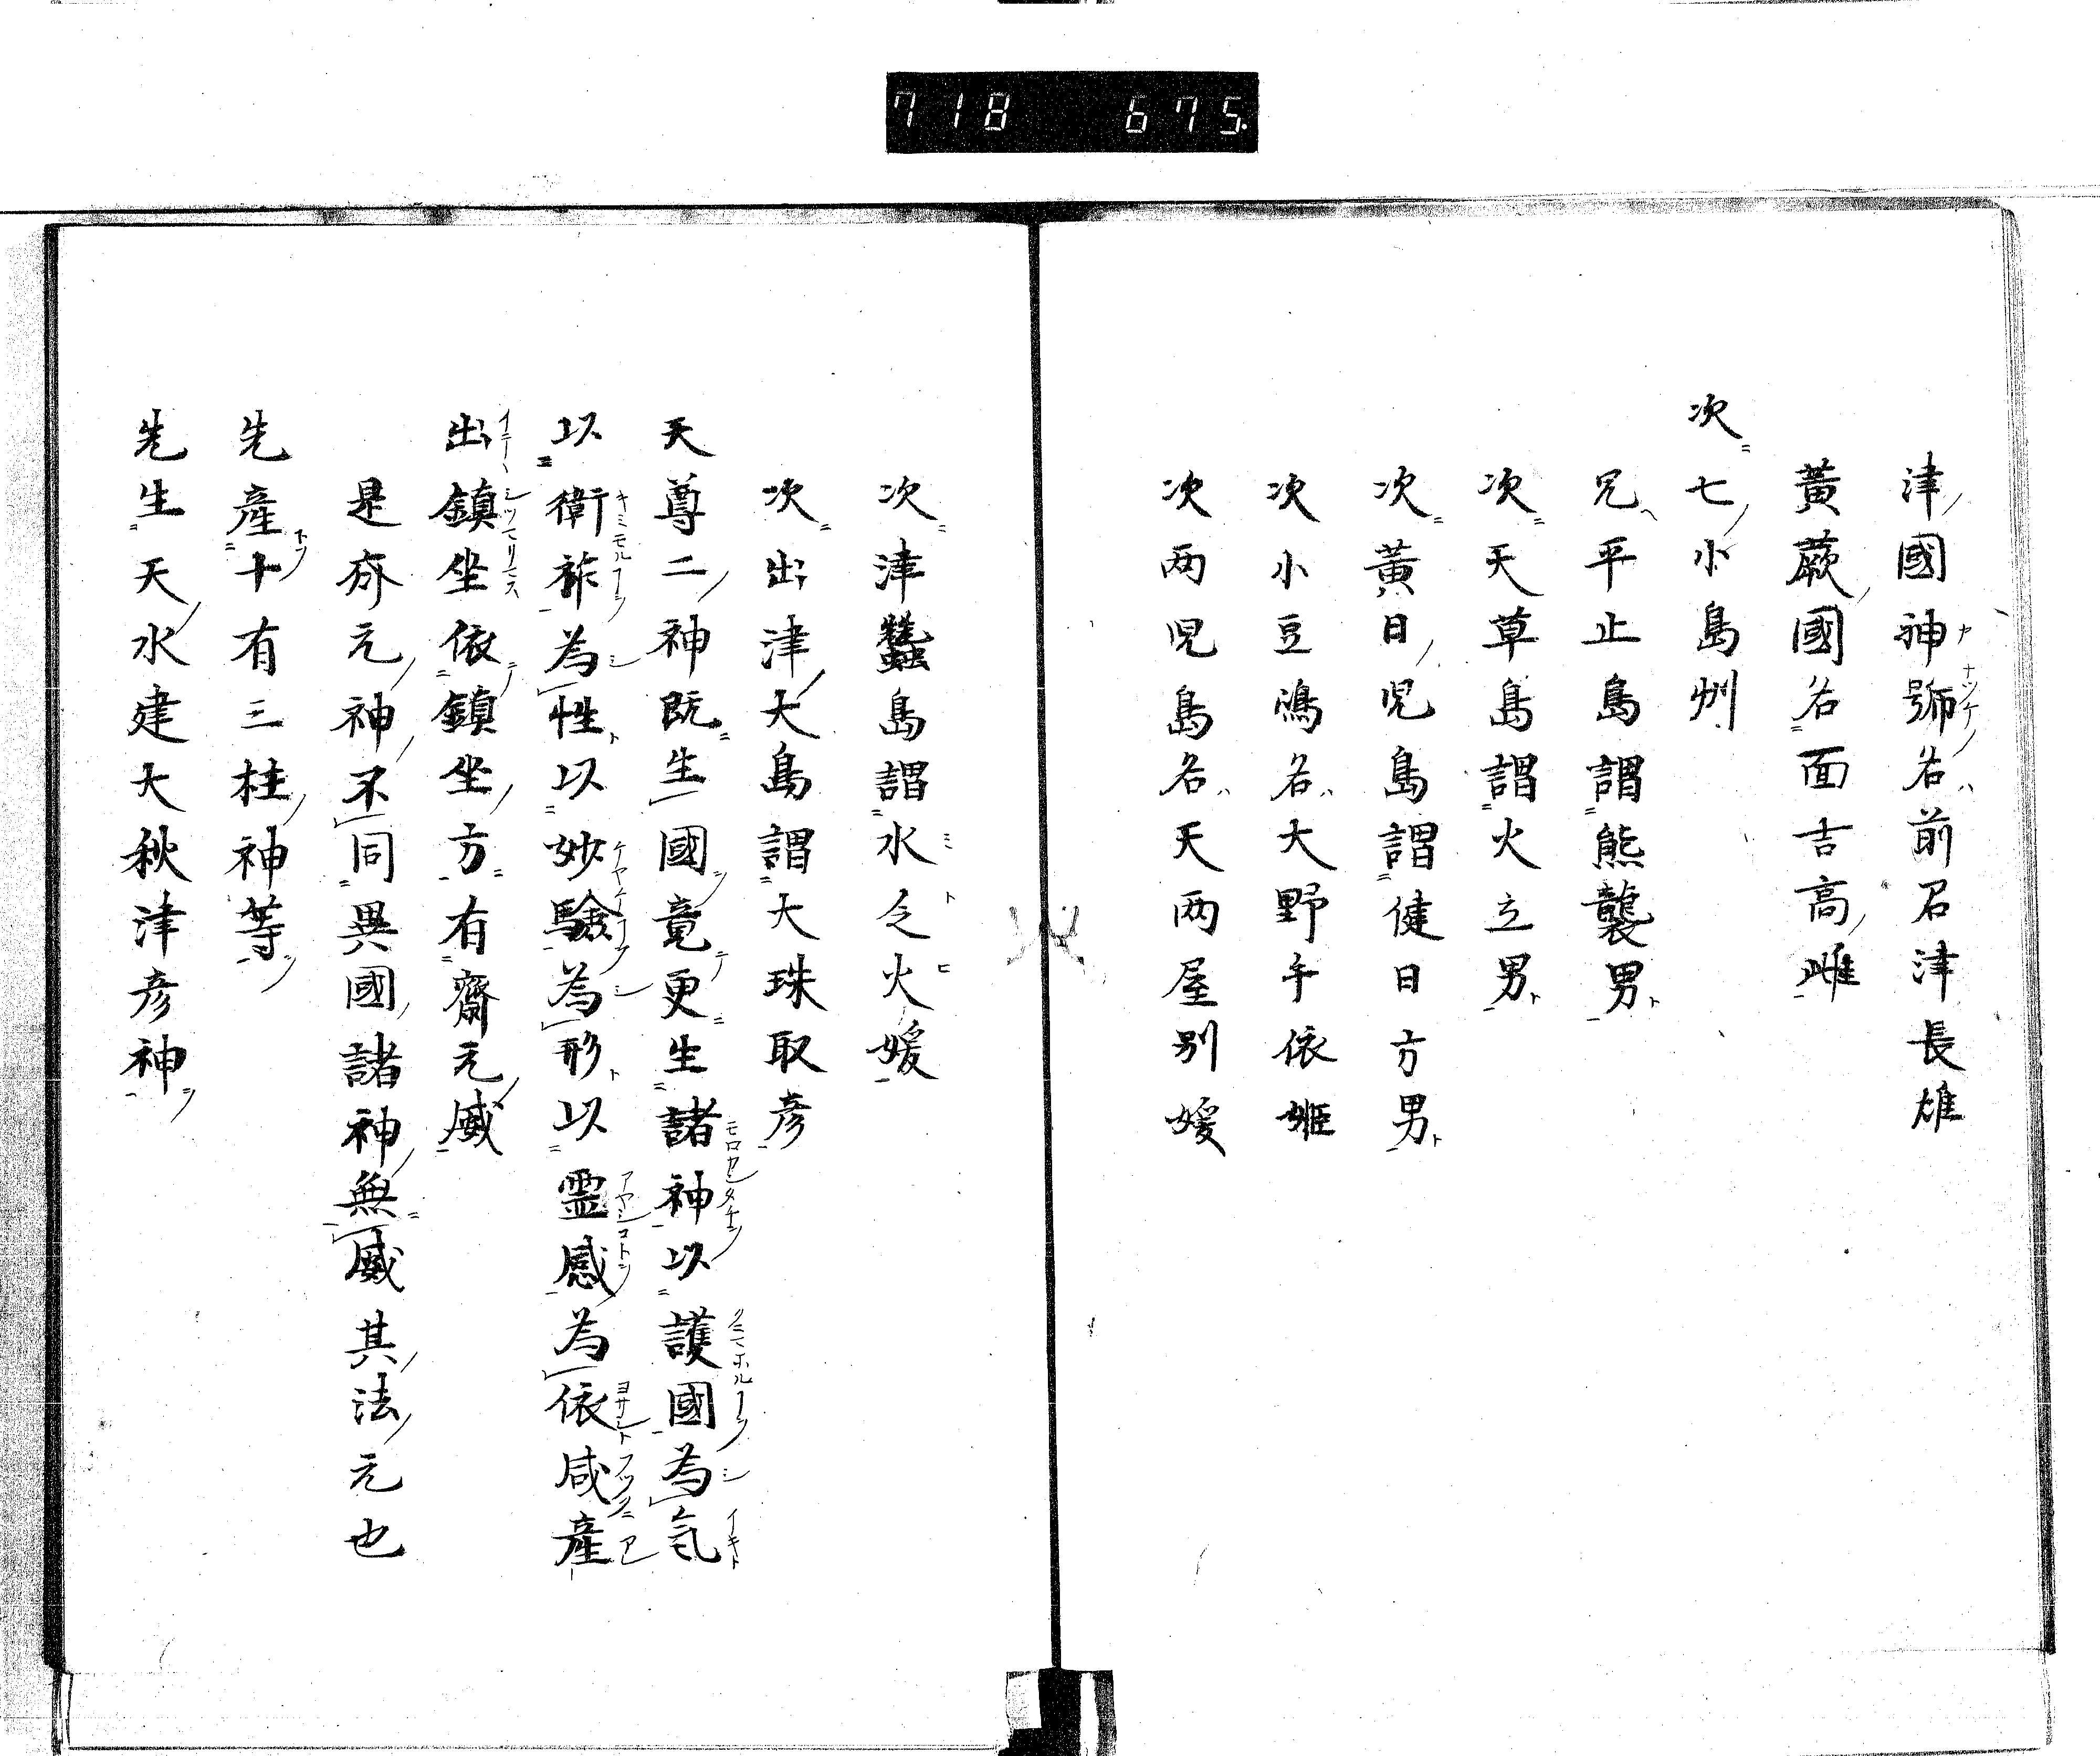 718 675
津國神號名前君津長雄
黃蕨國名面吉高雌
次七小島州
兄平止島謂熊襲男
次天草島謂火立男
次黃日児島謂健日方男
次小豆鴻名大野手依姫
次两児島名天两屋別媛
次津蠶島謂水令火媛
次出津大島謂大珠取彦
天尊二神既生國竟更生諸神以護國為氣
以衛祚為性以妙驗為形以霊感為依咸產
出鎮坐依鎮坐方有齋元威
是齊元神不同異國諸神無威其法元也
先產十有三柱神等
先生天水建大秋津彦神